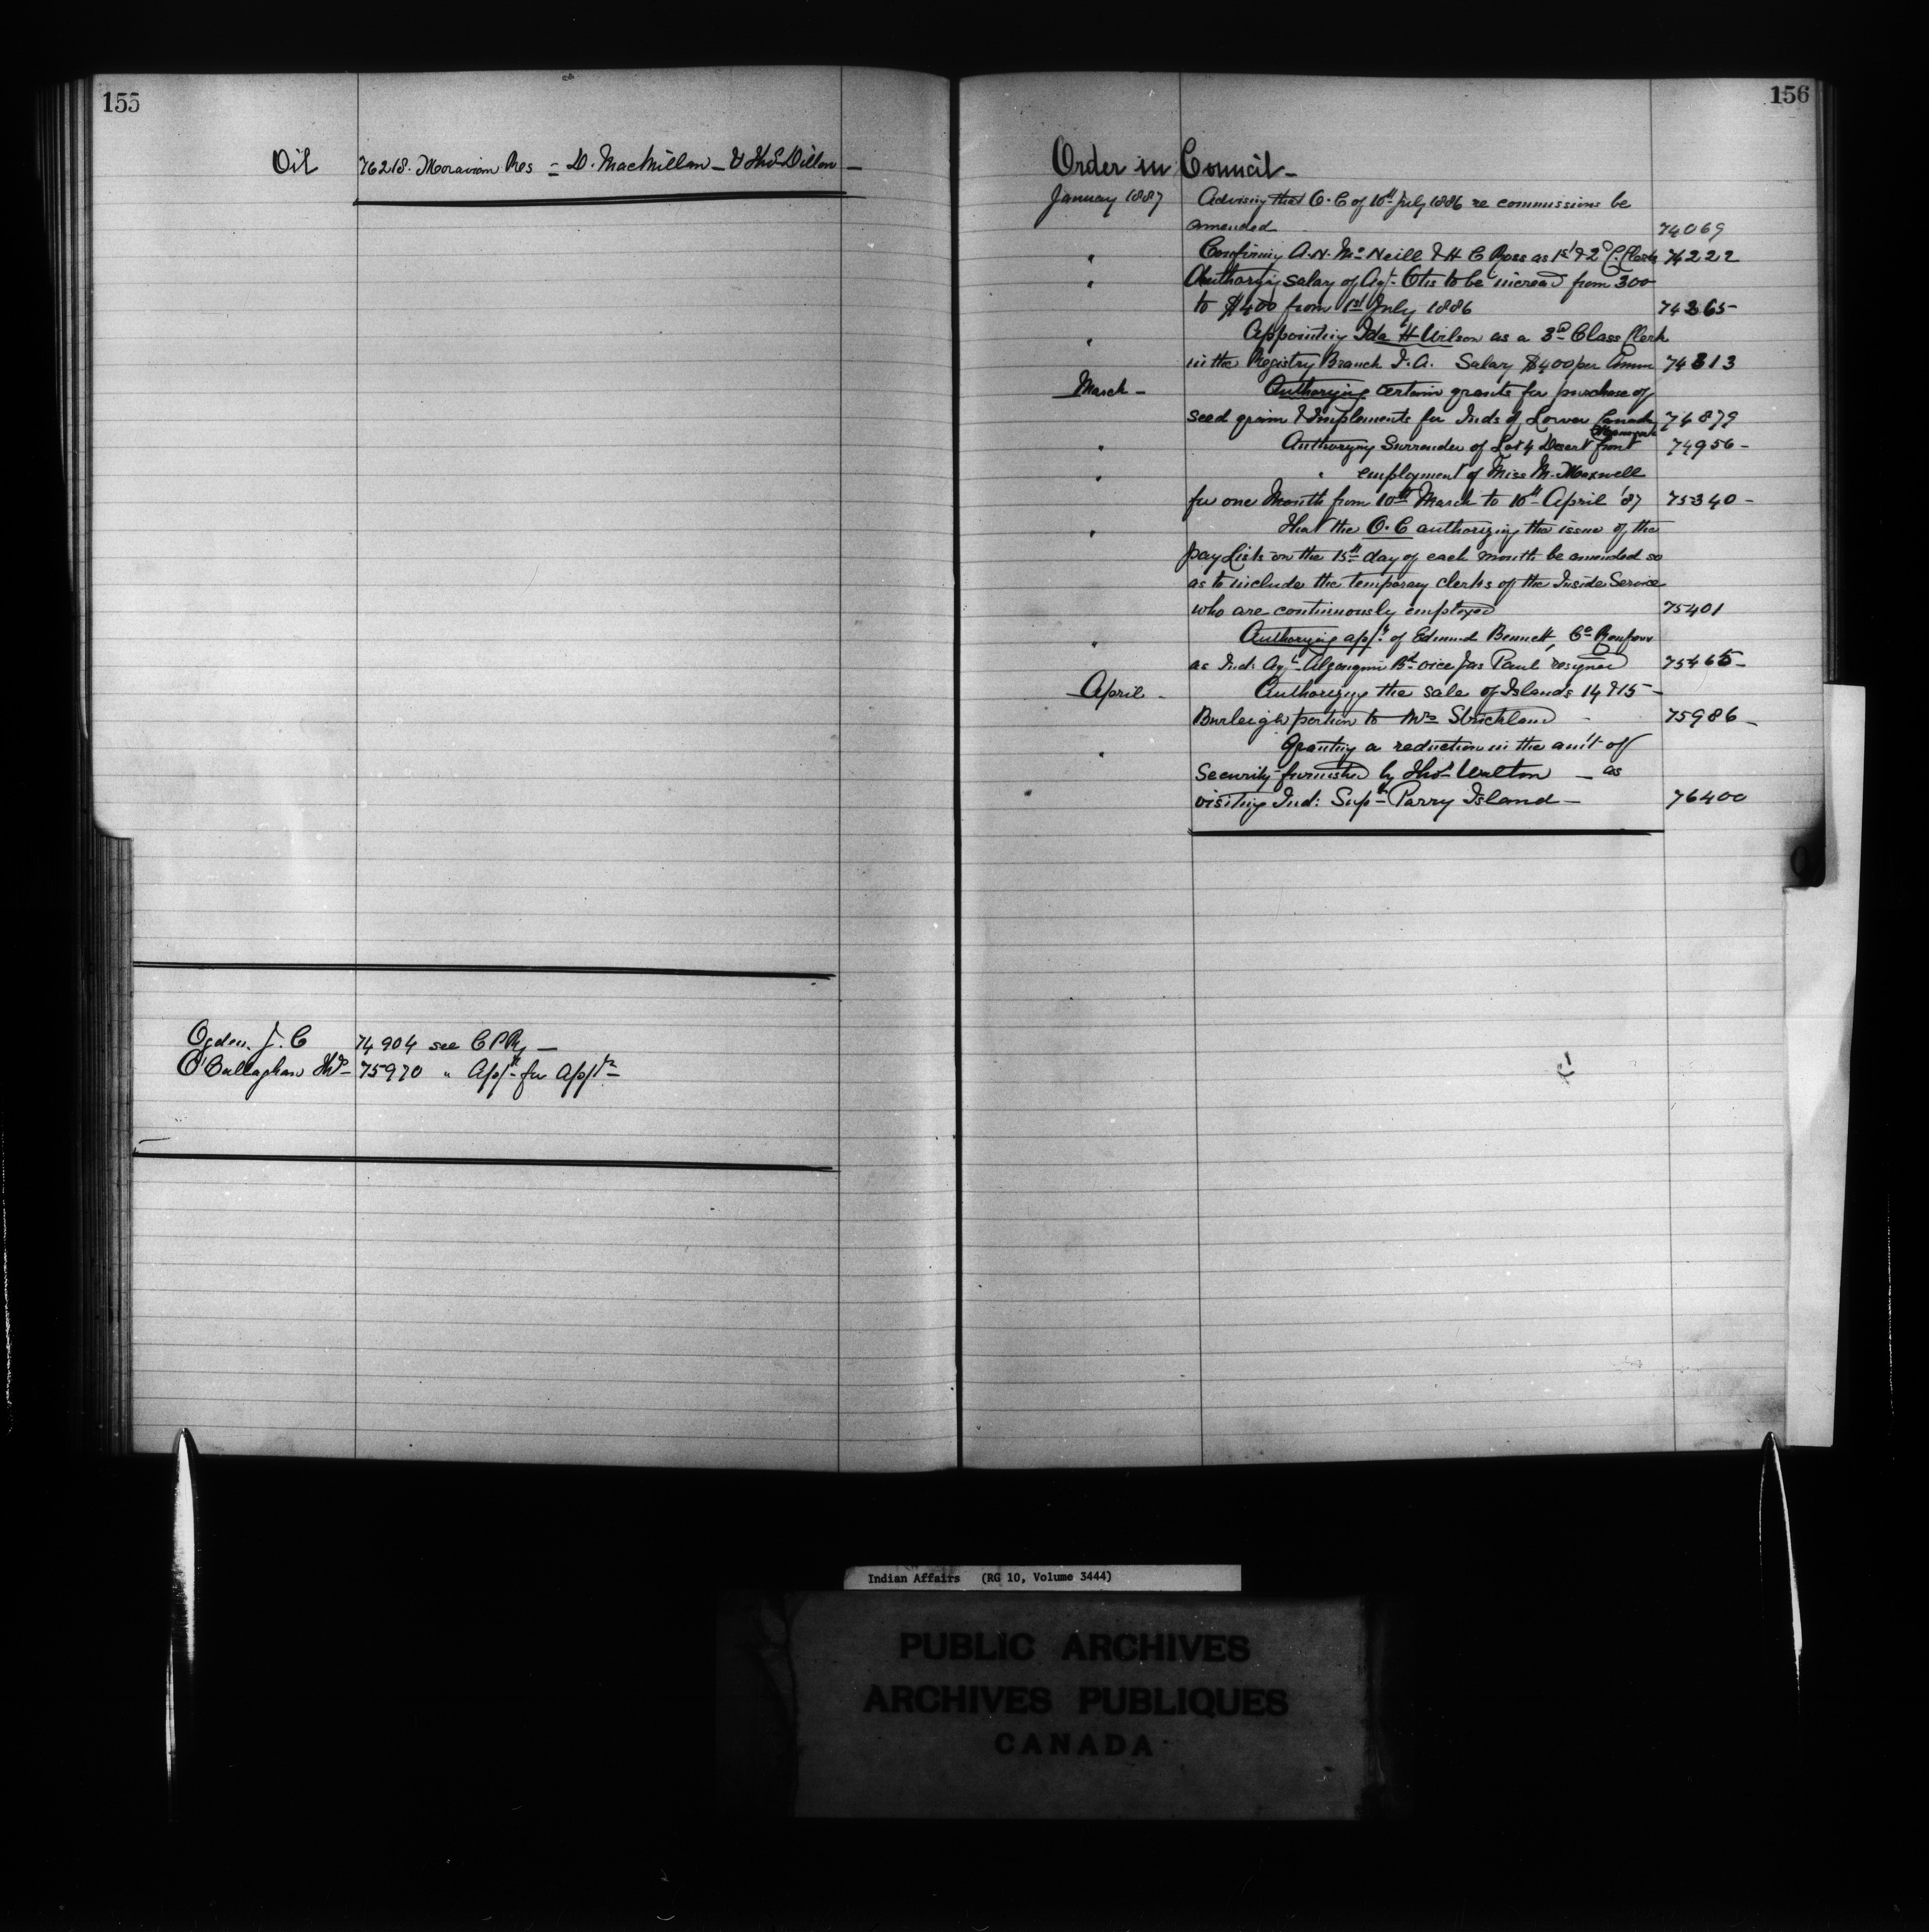 155
Oil 76218. Moravian Res = D. MacMillan - & Thos Dillon -
Ogden. J. C 74904 see C P Ry -
O'Callaghan Thos - 75970 " Appn for Appt
156
Order in Council -
January 1887 Advising that O. C of 10th July 1886 re commissions be
amended 74069
" Confirming A. N. McNeill & H C Ross as 1st & 2d C. Clerks 74222
" Authorzig salary of Agt Otis to be incread from 300
to $400 from 1st July 1886 74265-
" Appointing Ida H Wilson as a 3d Class Clerk
in the Registry Branch I. A. Salary $400 per Annum 74313
March - Authorizing certain grants for purchase of
seed grain & Implements for Inds of Lower Canada 74879
" Authorizing Surrender of Lot 4 Desert front 74956-
" " employment of Miss M. Maxwell
for one Month from 10th March to 10th April '87 75340-
" That the O. C authorizing the issue of the
pay Lists on the 15th day of each month be amended so
as to include the temporary clerks of the Inside Service
who are continuously employed 75401
" Authorizing appt of Edmund Bennett, Co Renfrew
as Ind: Agt Algonquin Bd vice Jas Paul resigned 75465-
April - Authorizing the sale of Islands 14 & 15-
Burleigh portion to Mrs Strickland 75986-
" Granting a reduction in the amt of
Security furnished by Thos Walton - as
visiting Ind: Supt Parry Island - 76400
Indian Affairs (RG 10, Volume 3444)
PUBLIC ARCHIVES
ARCHIVES PUBLIQUES
CANADA